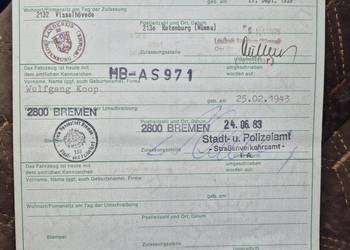 Wohnort/Firmensitz am Tag der Zulassung
2132 Visselhövede
Postleitzahl und Ort, Datum
2130 Rotenburg (Wümme)
Zulassungsstelle
Das Fahrzeug ist heute mit
dem amtlichen Kennzeichen
HB-AS971
umgeschrieben
worden auf:
Vorname, Name (ggf. auch Geburtsname), Firma
Wolfgang Koop
geb. am
25.02.1943
2800 BREMEN
Postleitzahl und Ort, Datum
2800 BREMEN
24. 06. 83
Zulassungsstelle
Stadt- u. Polizeiamt
- Straßenverkehrsamt -
I. A.
Das Fahrzeug ist heute mit
dem amtlichen Kennzeichen
umgeschrieben
worden auf:
Vorname, Name (ggf. auch Geburtsname), Firma
geb. am
Wohnort/Firmensitz am Tag der Umschreibung
Postleitzahl und Ort, Datum
Stempel
Zulassungsstelle